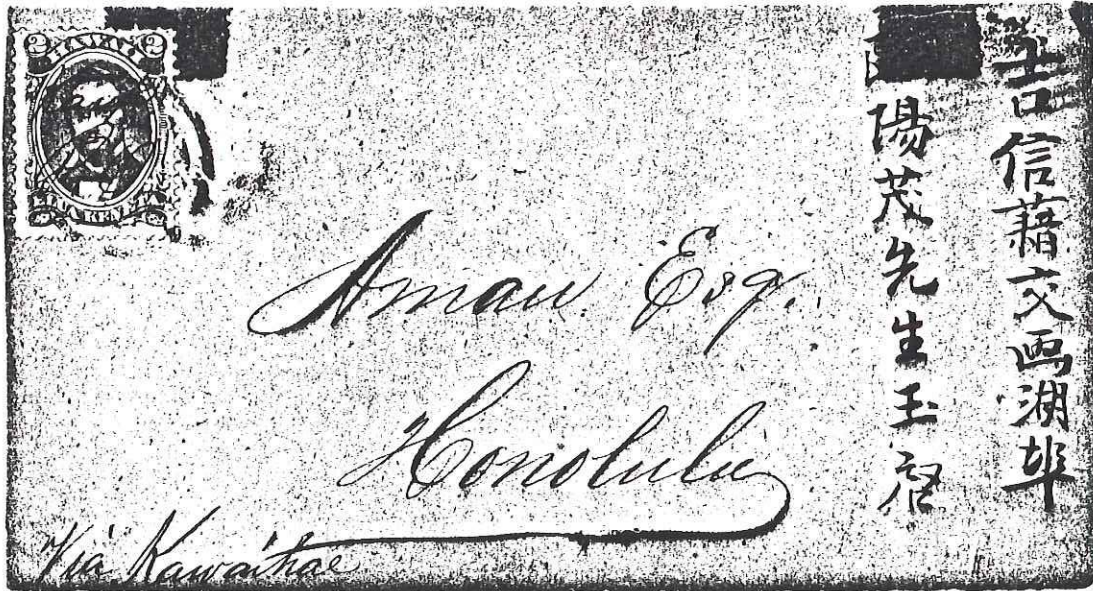 2 2
ELUA KENETA
Amau Esq.
Honolulu
Via Kawaihae
吉信藉交画湖埠
陽茂先生玉啓